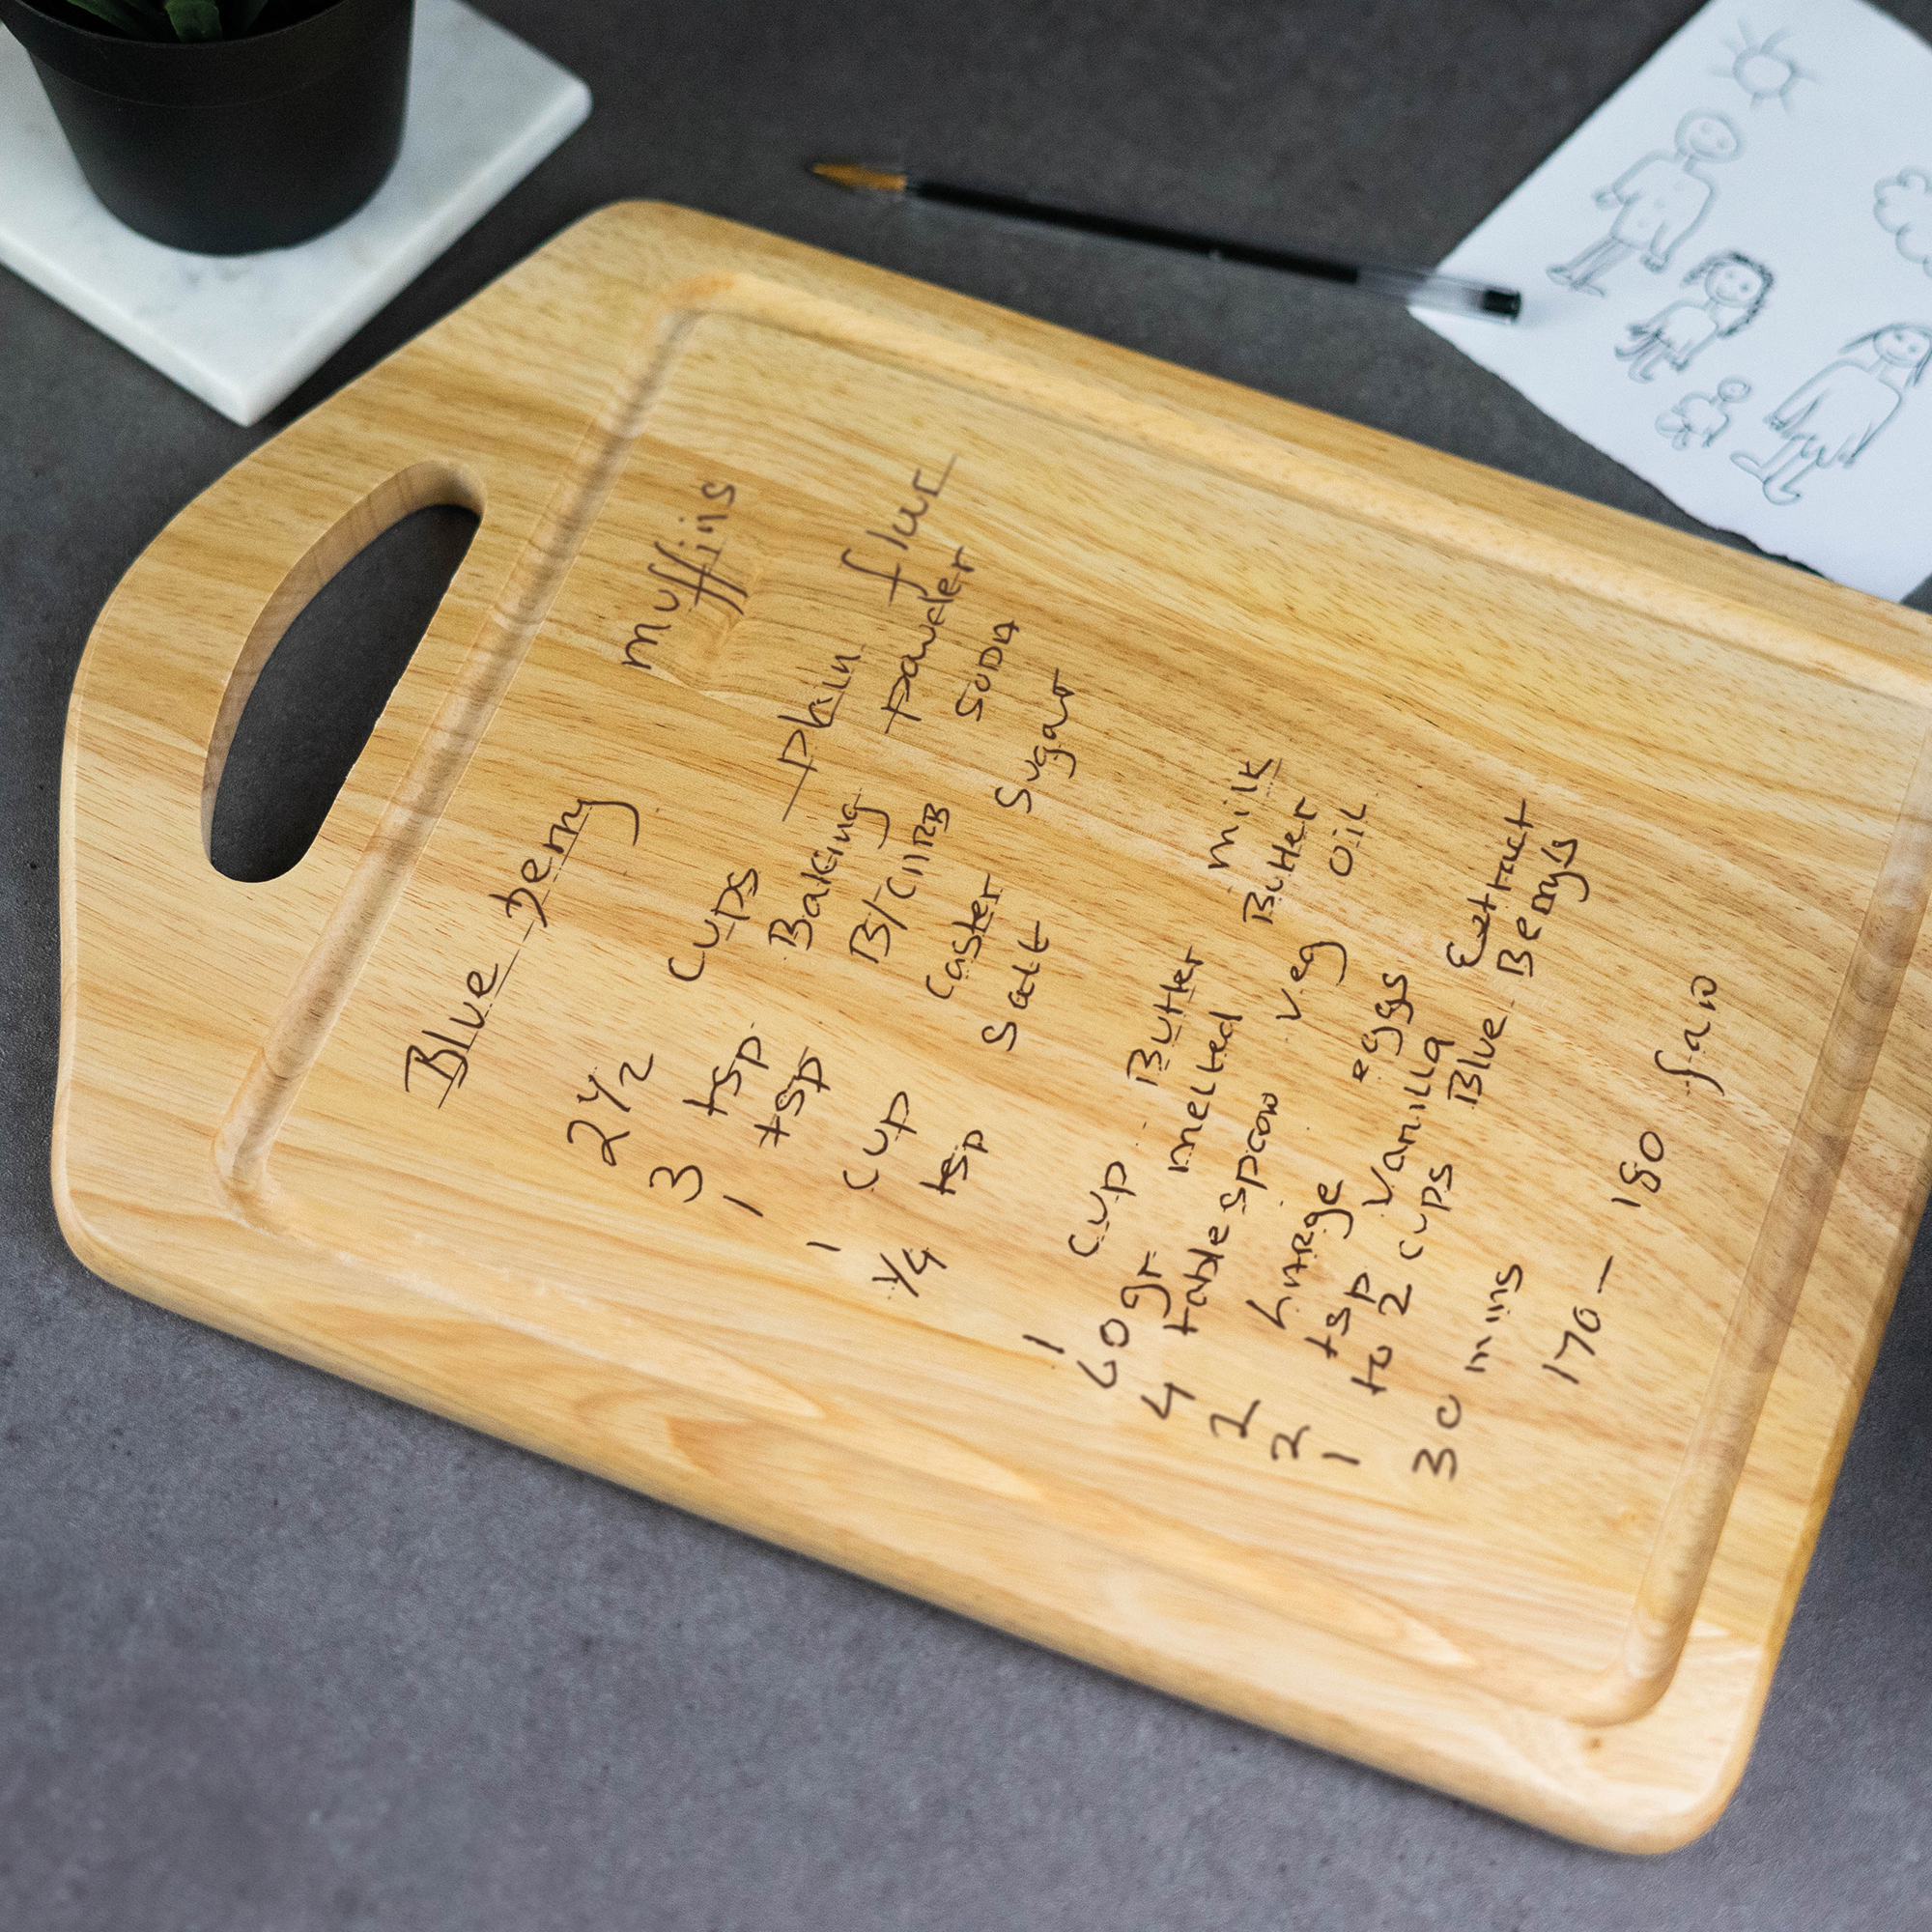 Blue berry muffins
2 1/2 cups plain flur
3 tsp Baking powder
1 tsp B/CARB SODA
1 cup caster sugar
1/4 tsp salt
1 cup Butter milk
60gr melted Butter
4 table spoon veg oil
2 LARge eggs
2 tsp vanilla Extract
1 to 2 cups Blue Berry's
30 mins 170-180 fan